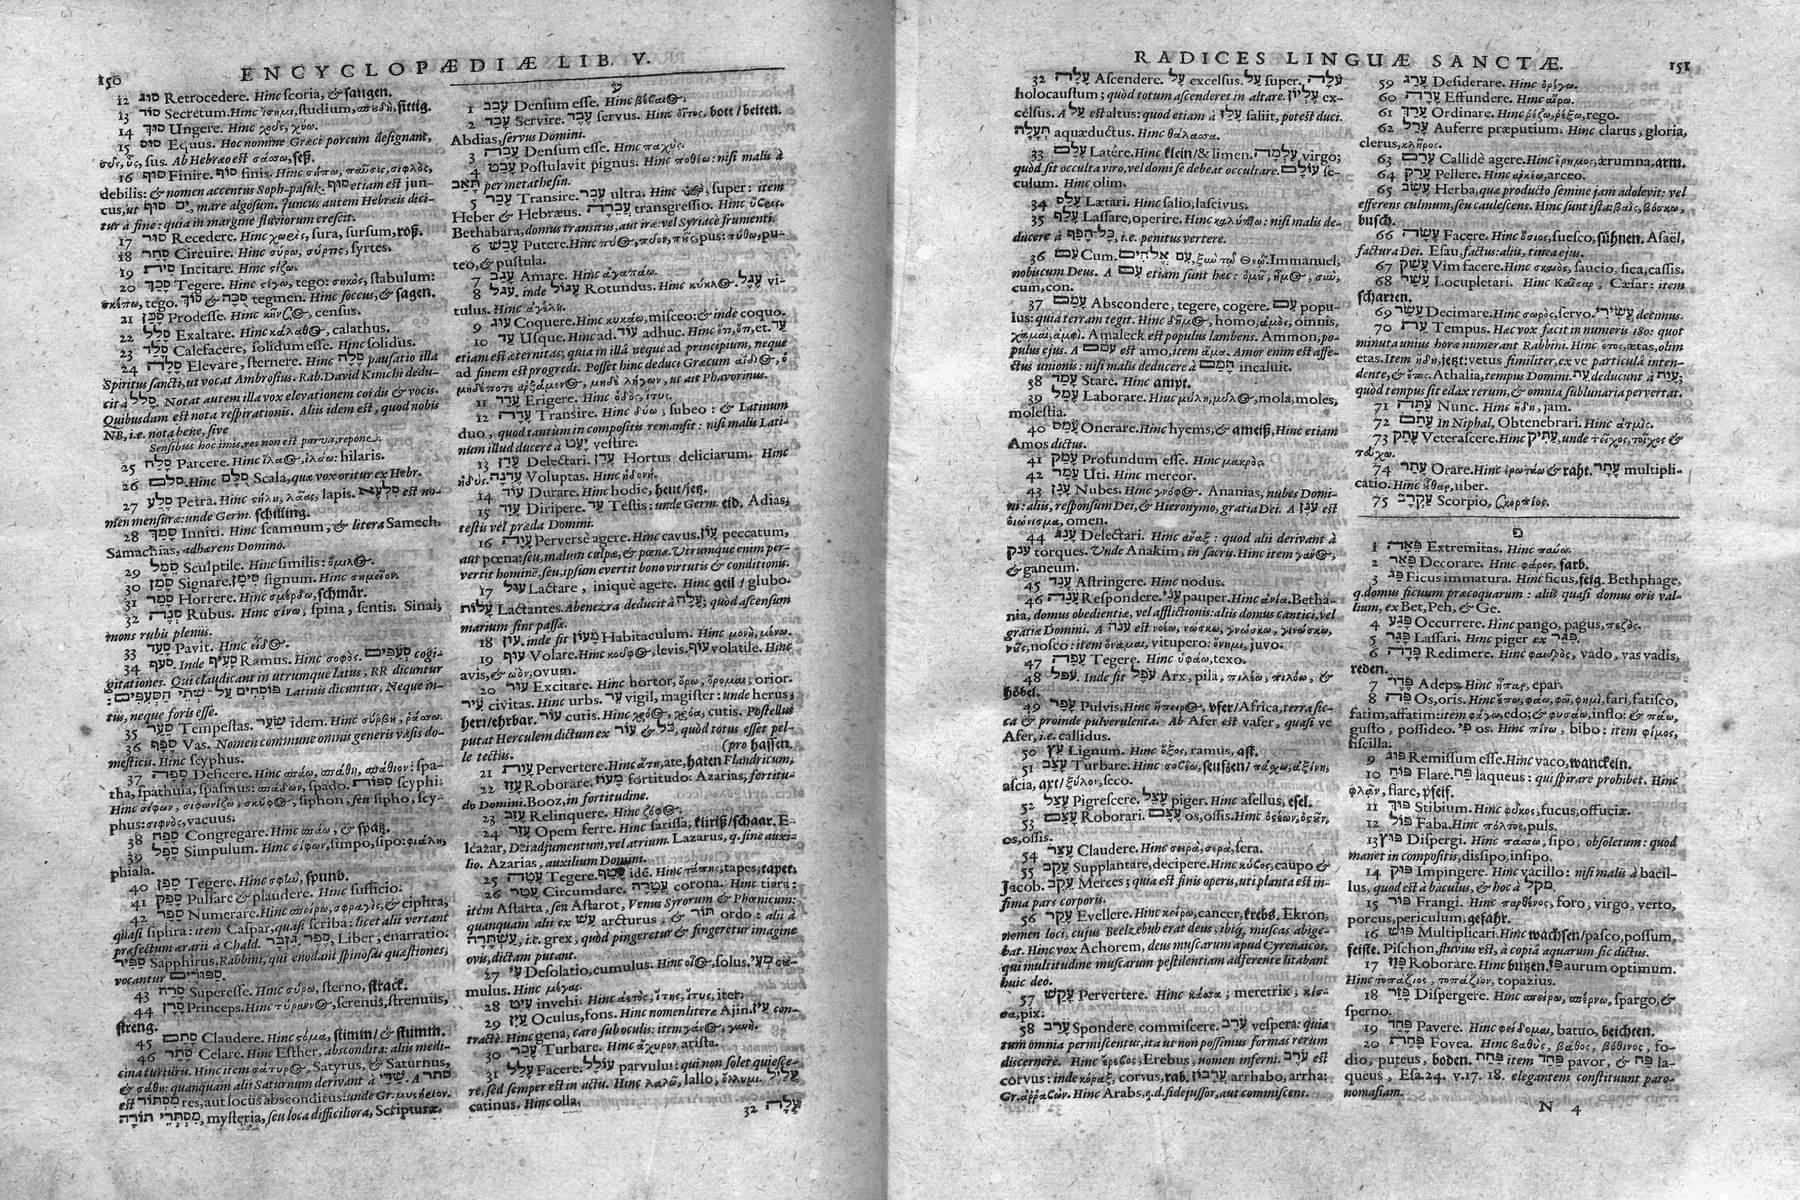 150 ENCYCLOPÆDIÆ LIB. V.
12 סוג Retrocedere. Hinc scoria, & saugen.
13 סור Secretum. Hinc studium, sittig.
14 סוך Ungere. Hinc χοῦς, χύω.
15 סוס Equus. Hoc nomine Græci porcum designant,
σῦς, ὗς, sus. Ab Hebræo est
16 סוף Finire. סוף finis. Hinc σήπω, παῦσις, σιφλὸς,
debilis: & nomen accentus Soph-pasuk. סוף etiam est jun-
cus, ut ים סוף, mare algosum. Juncus autem Hebræis dici-
tur à fine: quia in margine fluviorum crescit.
17 סור Recedere. Hinc χωρὶς, sura, sursum, roß.
18 סחר Circuire. Hinc σύρω, σύρτης, syrtes.
19 סית Incitare. Hinc σίζω.
20 סכך Tegere. Hinc tego: σηκὸς, stabulum:
σκέπω, tego. סוך & סכה tegmen. Hinc soccus, & sagen.
21 סכן Prodesse. Hinc census.
22 סלל Exaltare. Hinc κάλαθος, calathus.
23 סלד Calefacere, solidum esse. Hinc solidus.
24 סלה Elevare, sternere. Hinc סלה pausatio illa
Spiritus sancti, ut vocat Ambrosius. Rab. David Kimchi dedu-
cit à סלל. Notat autem illa vox elevationem cordis & vocis.
Quibusdam est nota respirationis. Aliis idem est, quod nobis
NB, i.e. nota bene, sive
Sensibus hoc imis, res non est parva, repone.
25 סלח Parcere. Hinc hilaris.
26 סלם. Hinc סלם Scala, quæ vox oritur ex Hebr.
27 סלע Petra. Hinc lapis. סלעא est no-
men mensuræ: unde Germ. schilling.
28 סמך Inniti. Hinc scamnum, & litera Samech.
Samachias, adhærens Domino.
29 סמל Sculptile. Hinc similis:
30 סמן Signare. סימן signum. Hinc σημεῖον.
31 סמר Horrere. Hinc σμέρδω, schmär.
32 סנה Rubus. Hinc σίνω, spina, sentis. Sinai,
mons rubis plenus.
33 סעד Pavit. Hinc
34 סעף. Inde סעיף Ramus. Hinc σοφὸς. סעפים cogi-
gitationes. Qui claudicant in utrumque latus, RR dicuntur
פוסחים על שתי הסעפים: Latinis dicuntur, Neque in-
tus, neque foris esse.
35 סער Tempestas. שער idem. Hinc σύρβη,
36 סף Vas. Nomen commune omnis generis vasis do-
mesticis. Hinc scyphus.
37 ספה Deficere. Hinc spa-
tha, spathula, spasmus: spado. ספות scyphi:
Hinc σίφων, siphon, seu sipho, scy-
phus: vacuus.
38 ספח Congregare. Hinc & spatz.
39 ספל Simpulum. Hinc σίφων, simpo, sipo: φιάλη,
phiala.
40 ספן Tegere. Hinc spund.
41 ספק Pulsare & plaudere. Hinc sufficio.
42 ספר Numerare. Hinc & ciphra,
quasi siphra: item Caspar, quasi scriba: licet alii vertant
præfectum ærarii à Chald. ספר, גזבר Liber, enarratio.
ספיר Sapphirus. Rabbini, qui enodant spinosas quæstiones,
vocantur ספורים.
43 סרח Superesse. Hinc σύρω, sterno, strack.
44 סרן Princeps. Hinc τύραννος, serenus, strenuus,
streng.
45 סתם Claudere. Hinc stimm/ & stumm.
46 סתר Celare. Hinc Esther, abscondita: aliis medi-
cina turturis. Hinc item Satyrus, & Saturnus,
& σάθη: quanquam alii Saturnum derivant à שדי. A סתר
est מסתור res, aut locus absconditus: unde Gr. μυστήριον.
מסתרי תורה, mysteria, seu loca difficiliora, Scripturæ.
ע
1 עבב Densum esse. Hinc
2 עבד Servire. עבד servus. Hinc bott/beiten.
Abdias, servus Domini.
3 עבה Densum esse. Hinc παχύς.
4 עבט Postulavit pignus. Hinc ποθέω: nisi malis à
תאב per metathesin.
5 עבר Transire. עבר ultra. Hinc super: item
Heber & Hebræus. עברה transgressio. Hinc
Bethabara, domus transitus, aut iræ: vel Syriacè frumenti.
6 עבש Putere. Hinc pus: πύθω, pu-
teo, & pustula.
7 עגב Amare. Hinc ἀγαπάω.
8 עגל. inde עגול Rotundus. Hinc עגל vi-
tulus. Hinc ἀγέλη.
9 עוג Coquere. Hinc κυκάω, misceo: & inde coquo.
10 עד Usque. Hinc ad. עוד adhuc. Hinc et. עד
etiam est æternitas, quia in illâ neque ad principium, neque
ad finem est progredi. Posset hinc deduci Græcum
ut ait Phavorinus.
11 עדד Erigere. Hinc
12 עדה Transire. Hinc δύω, subeo: & Latinum
duo, quod tantum in compositis remansit: nisi malis Lati-
num illud ducere à יעט vestire.
13 עדן Delectari. עדן Hortus deliciarum. Hinc
ἡδύς. עדנה Voluptas. Hinc ἡδονή.
14 עוד Durare. Hinc hodie, heut/jetz.
15 Diripere. עד Testis: unde Germ. eid. Adias,
testis vel præda Domini.
16 עוה Perversè agere. Hinc cavus. עון peccatum,
aut pœna: seu, malum culpæ, & pœnæ. Utrumque enim per-
vertit hominē, seu, ipsum evertit bono virtutis & conditionis.
17 עול Lactare, iniquè agere. Hinc geil/ glubo.
עלות Lactantes. Abenezra deducit à עלה: quòd ascensum
marium sint passæ.
18 עון. inde fit מעון Habitaculum. Hinc μονὴ, μένω.
19 עוף Volare. Hinc levis. עוף volatile. Hinc
avis, & ovum.
20 עור Excitare. Hinc hortor, orior.
עיר civitas. Hinc urbs. ער vigil, magister: unde herus;
herr/ehrbar. עור cutis. Hinc cutis. Postellus
putat Herculem dictum ex כל & עור, quòd totus esset pel-
le tectus. (pro hassen.
21 עוה Pervertere. Hinc ate, haten Flandricum,
22 עזז Roborare. מעוז fortitudo: Azarias, fortitu-
do Domini. Booz, in fortitudine.
23 עזב Relinquere. Hinc
24 עזר Opem ferre. Hinc sarissa; schaar. E-
leazar, Dei adjumentum, vel atrium. Lazarus, q. sine auxi-
lio. Azarias, auxilium Domini.
25 עטה Tegere. עטף idē. Hinc τάπης, tapes, tapet.
26 עטר Circumdare. עטרה corona. Hinc tiara:
item Astarta, seu Astarot, Venus Syrorum & Phœnicum:
quanquam alii ex עש arcturus, & תור ordo: alii à
עשתרה, i.e. grex, quòd pingeretur & fingeretur imagine
ovis, dictam putant.
27 עי Desolatio, cumulus. Hinc solus.
mulus. Hinc μέγας.
28 עיט invehi. Hinc iter.
29 עין Oculus, fons. Hinc nomen literæ Ajin. עין con-
tractè. Hinc gena, caro sub oculis: item
30 עכר Turbare. Hinc arista.
31 עלל Facere. עולל parvulus: qui non solet quiesce-
re, sed semper est in actu. Hinc λαλῶ, lallo, עליל
catinus. Hinc olla.
32 עלה
RADICES LINGUÆ SANCTÆ. 151
32 עלה Ascendere. על excelsus. על super. עלה
holocaustum; quòd totum ascenderet in altare. עליון ex-
celsus. A על est altus: quod etiam à עלז saliit, potest duci.
תעלה aquæductus. Hinc θάλασσα.
33 עלם Latére. Hinc klein/& limen. עלמה virgo;
quòd sit occulta viro, vel domi se debeat occultare. עולם se-
culum. Hinc olim.
34 עלס Lætari. Hinc salio, lascivus.
35 עלף Lassare, operire. Hinc καλύπτω: nisi malis de-
ducere à כל-חפף, i.e. penitus vertere.
36 עם Cum. עם אלהים, Immanuel,
nobiscum Deus. A עם etiam sunt hæc:
cum, con.
37 עמם Abscondere, tegere, cogere. עם popu-
lus: quia terram tegit. Hinc homo, omnis,
Amaleck est populus lambens. Ammon, po-
pulus ejus. A עמם est amo, item ἅμα. Amor enim est affe-
ctus unionis: nisi malis deducere à חמם incaluit.
38 עמד Stare. Hinc ampt.
39 עמל Laborare. Hinc mola, moles,
molestia.
40 עמס Onerare. Hinc hyems, & ameiß, Hinc etiam
Amos dictus.
41 עמק Profundum esse. Hinc μακρὸς.
42 עמר Uti. Hinc mereor.
43 ענן Nubes. Hinc Ananias, nubes Domi-
ni: aliis, responsum Dei, & Hieronymo, gratia Dei. A ענן est
omen.
44 ענג Delectari. Hinc quod alii derivant à
ענק torques. Unde Anakim, in sacris. Hinc item
& ganeum.
45 ענד Astringere. Hinc nodus.
46 ענה Respondere. עני pauper. Hinc Betha-
nia, domus obedientiæ, vel afflictionis: aliis domus cantici, vel
gratiæ Domini. A ענה est
nosco: item vitupero: juvo.
47 עפה Tegere. Hinc texo.
48 עפל. Inde fit עפל Arx, pila, &
höbel.
49 עפר Pulvis. Hinc vfer/Africa, terra sic-
ca & proinde pulverulenta. Ab Afer est vafer, quasi ve
Afer, i.e. callidus.
50 עץ Lignum. Hinc ὄζος, ramus, ast.
51 Turbare. Hinc
ascia, axt/ ξύλον, seco.
52 עצל Pigrescere. עצל piger. Hinc asellus, esel.
53 עצם Roborari. עצם os, ossis. Hinc
os, ossis.
54 עצר Claudere. Hinc sera.
55 עקב Supplantare, decipere. Hinc caupo &
Jacob. עקב Merces; quia est finis operis, uti planta est in-
fima pars corporis.
56 עקר Evellere. Hinc κείρω, cancer, krebs. Ekron,
nomen loci, cujus Beelzebub erat deus, ibiq; muscas abige-
bat. Hinc vox Achorem, deus muscarum apud Cyrenaicos,
qui multitudine muscarum pestilentiam adferente litabant
huic deo.
57 עקש Pervertere. Hinc meretrix,
pix:
58 ערב Spondere, commiscere. ערב vespera: quia
tum omnia permiscentur, ita ut non possimus formas rerum
discernere. Hinc ἔρεβος, Erebus, nomen inferni. ערב est
corvus: inde κόραξ, corvus, rab. ערבון arrhabo, arrha:
Gr. ἀῤῥαβών. Hinc Arabs, q.d. fidejussor, aut commiscens.
59 ערג Desiderare. Hinc ὀρέγω.
60 ערה Effundere. Hinc
61 ערך Ordinare. Hinc rego.
62 ערל Auferre præputium. Hinc clarus, gloria,
clerus, κλῆρος.
63 ערם Callidè agere. Hinc ἔρημος, ærumna, arm.
64 ערק Pellere. Hinc ἀρκέω, arceo.
65 עשב Herba, quæ producto semine jam adolevit: vel
efferens culmum, seu caulescens. Hinc sunt ista: βόσκω,
busch.
66 עשה Facere. Hinc suesco, sühnen. Asaël,
factura Dei. Esau, factus: aliis, tinea ejus.
67 עשק Vim facere. Hinc saucio, sica, cassis.
68 עשר Locupletari. Hinc Καῖσαρ, Cæsar: item
scharren.
69 עשר Decimare. Hinc σωρὸς, servo. עשירי decimus.
70 עת Tempus. Hæc vox facit in numeris 180: quot
minuta unius horæ numerant Rabbini. Hinc ἔτος, ætas, olim
etas. Item ἤδη, jetzt: vetus similiter, ex ve particulâ inten-
dente, & ἔτος. Athalia, tempus Domini. עת deducunt à עות:
quòd tempus sit edax rerum, & omnia sublunaria pervertat.
71 עתה Nunc. Hinc ἤδη, jam.
72 עתם In Niphal, Obtenebrari. Hinc ἀτμὶς.
73 עתק Veterascere. Hinc עתיק, unde τεῖχος, τοῖχος &
74 עתר Orare. Hinc ἐρωτάω & raht. עתר multipli-
catio. Hinc uber.
75 עקרב Scorpio, σκορπίος.
פ
1 פאה Extremitas. Hinc παύω.
2 פאר Decorare. Hinc φάρος, farb.
3 פג Ficus immatura. Hinc ficus, feig. Bethphage,
q. domus ficuum præcoquarum: aliis quasi domus oris val-
lium, ex Bet, Peh, & Ge.
4 פגע Occurrere. Hinc pango, pagus,
5 פגר Lassari. Hinc piger ex פגר.
6 פדה Redimere. Hinc vado, vas vadis,
reden.
7 פדר Adeps. Hinc ἧπαρ, epar.
8 פה Os, oris. Hinc φημὶ, fari, fatisco,
fatim, affatim: item φάγω, edo; & φυσάω, inflo: &
gusto, possideo. פי os. Hinc πίνω, bibo: item φίμος,
fiscilla.
9 פוג Remissum esse. Hinc vaco, wanckeln.
10 פוח Flare. פח laqueus: qui spirare prohibet. Hinc
flare, pfeif.
11 פוך Stibium. Hinc φῦκος, fucus, offuciæ.
12 פול Faba. Hinc πόλτος, puls.
13 פוץ Dispergi. Hinc sipo, obsoletum: quod
manet in compositis, dissipo, insipo.
14 פוק Impingere. Hinc vacillo: nisi malis à bacil-
lus, quod est à baculus, & hoc à מקל.
15 פור Frangi. Hinc παρθένος, foro, virgo, verto,
porcus, periculum, gefahr.
16 פוש Multiplicari. Hinc wachsen/pasco, possum,
feiste. Pischon, fluvius est, à copiâ aquarum sic dictus.
17 פזז Roborare. Hinc butzen. פז aurum optimum.
Hinc τοπάζιος, τοπάζιον, topazius.
18 פזר Dispergere. Hinc spargo, &
sperno.
19 פחד Pavere. Hinc φείδομαι, batuo, beichten.
20 פחת Fovea. Hinc βαθὺς, βάθος, βόθινος, fo-
dio, puteus, boden. פחת item פחד pavor, & פח la-
queus, Esa. 24. v. 17. 18. elegantem constituunt paro-
nomasiam.
N 4